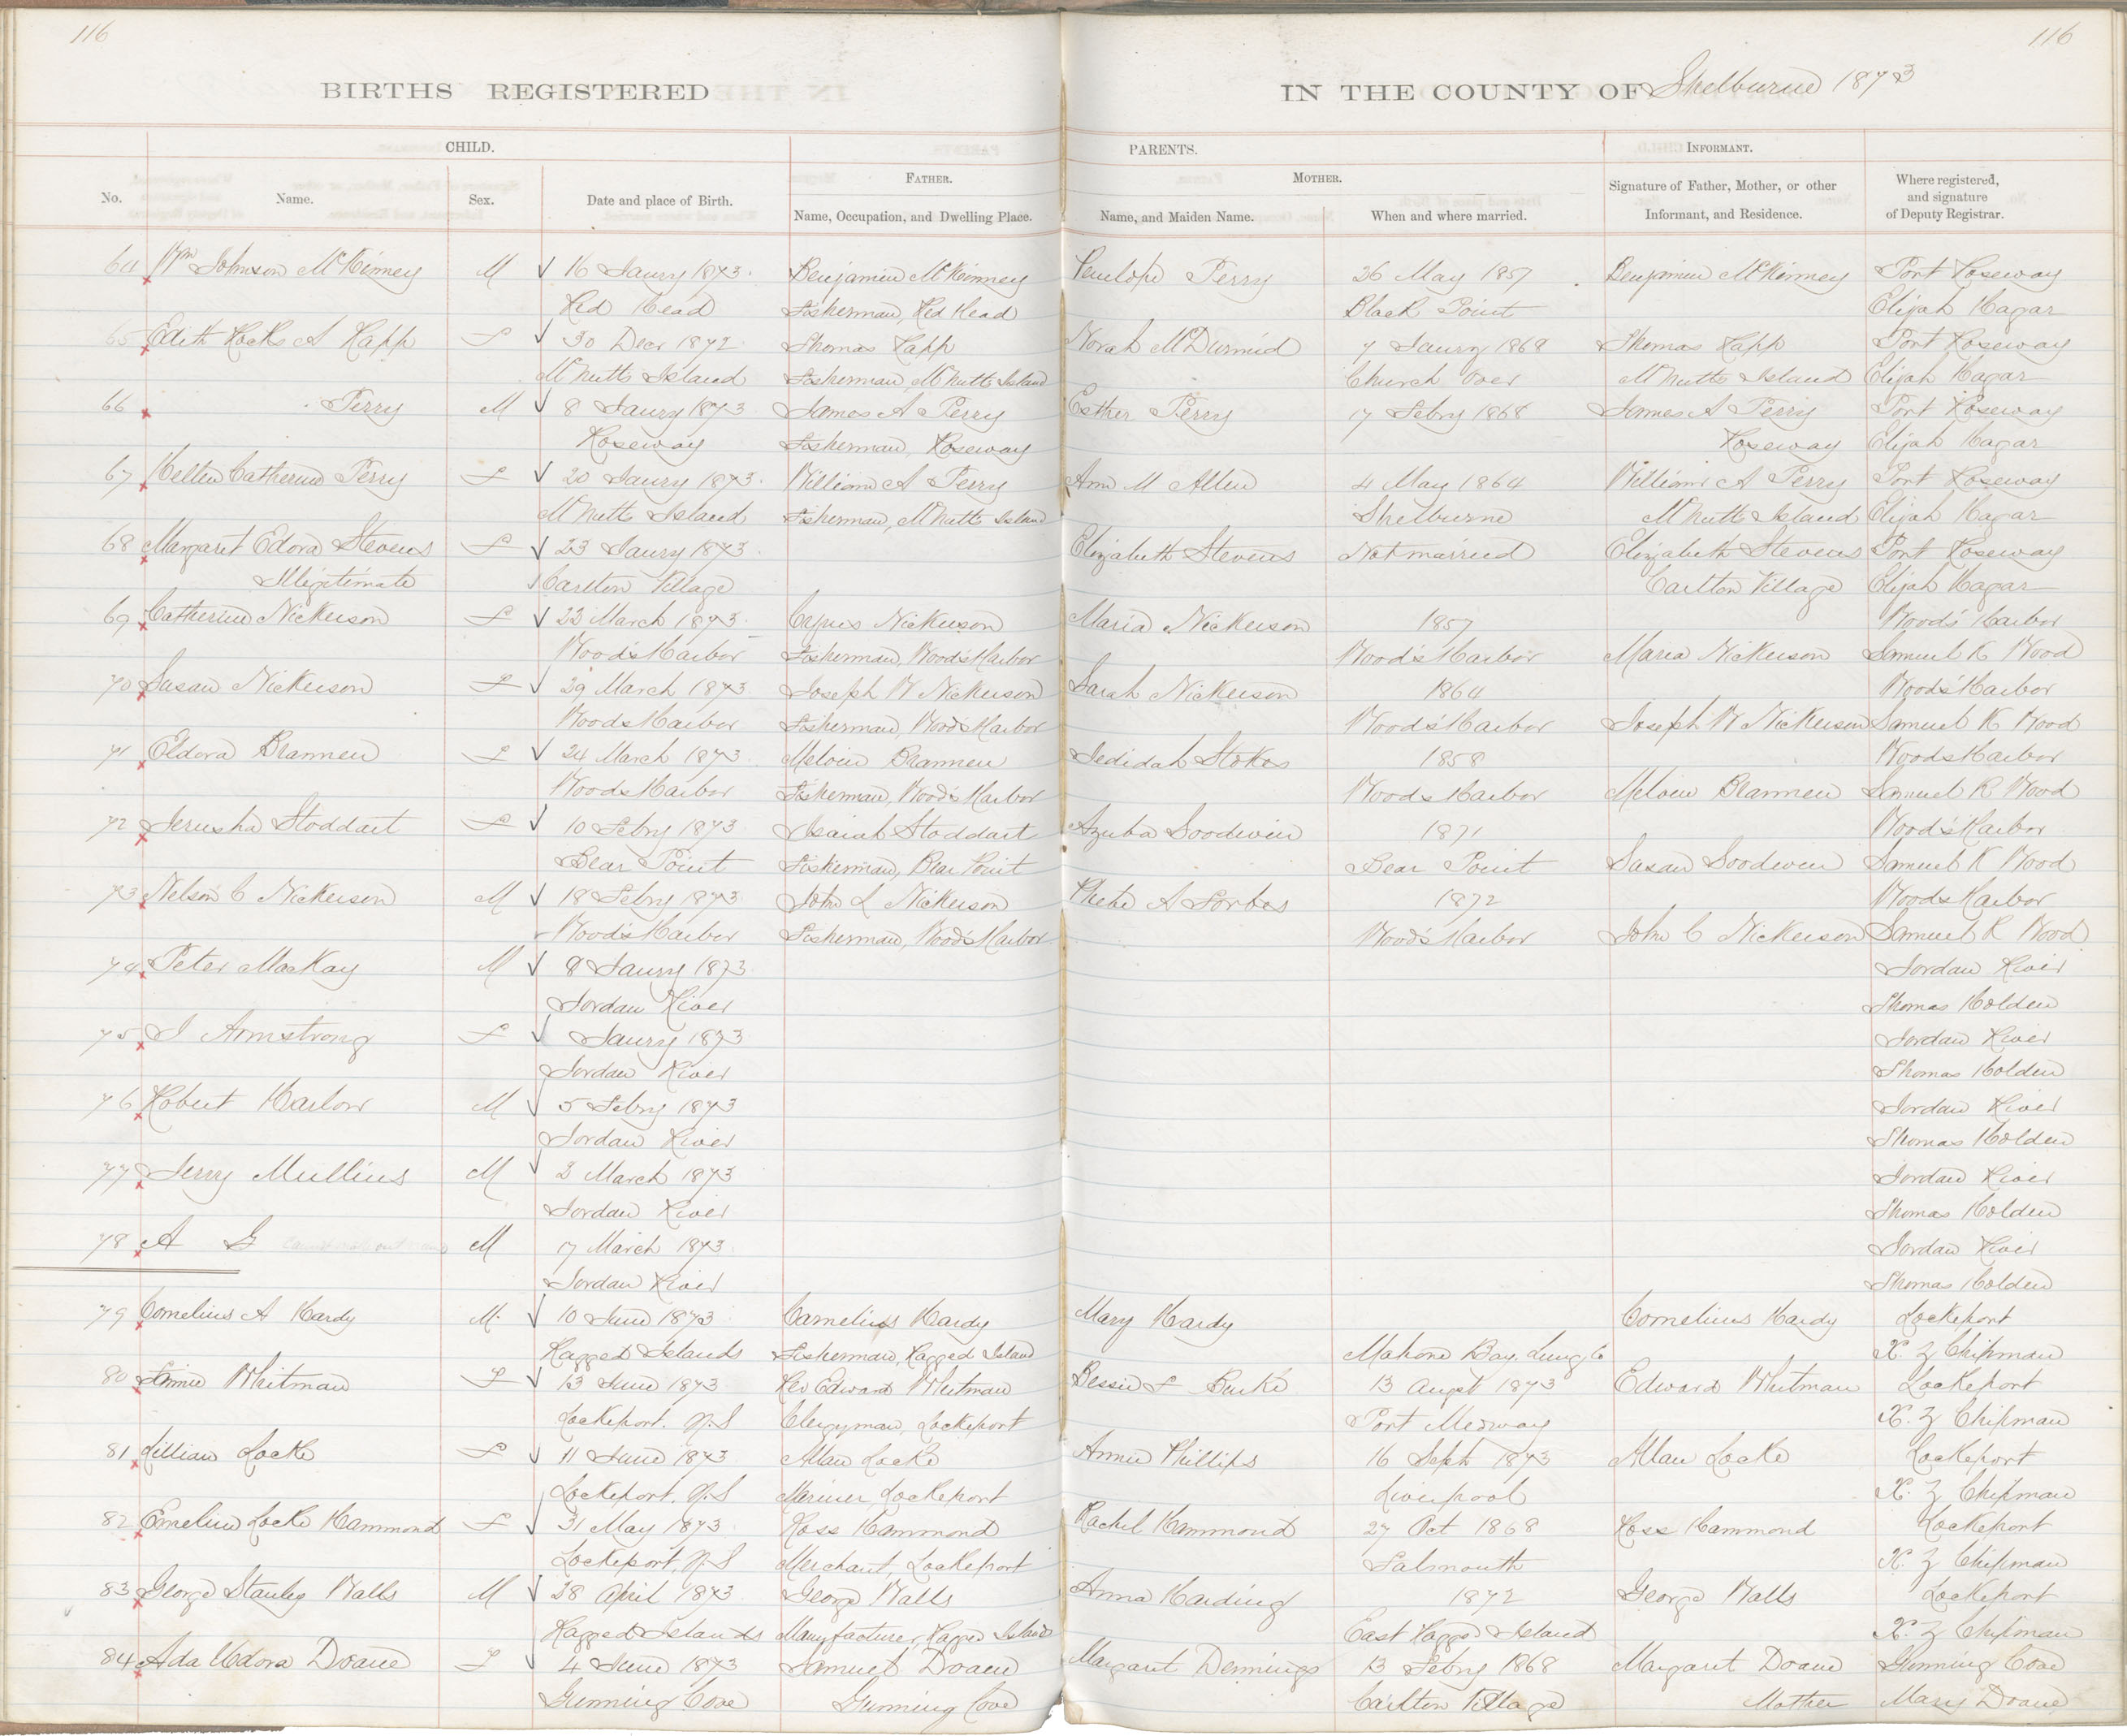 116 116
BIRTHS REGISTERED IN THE COUNTY OF Shelburne 1873
CHILD. PARENTS. INFORMANT.
FATHER. MOTHER.
No. Name. Sex. Date and place of Birth. Name, Occupation, and Dwelling Place. Name, and Maiden Name. When and where married. Signature of Father, Mother, or other Informant, and Residence. Where registered, and signature of Deputy Registrar.
64 Wm Johnson McKinney M 16 Janry 1873. Benjamin McKinney Penelope Perry 26 May 1857 Benjamin McKinney Port Roseway
Red Head Fisherman, Red Head Black Point Elijah Hagar
65 Edith Locke A Rapp F 30 Decr 1872 Thomas Rapp Norah McDurmid 7 Janry 1868 Thomas Rapp Port Roseway
McNutts Island Fisherman, McNutts Island Church Over McNutts Island Elijah Hagar
66 Perry M 8 Janry 1873 James A Perry Esther Perry 17 Febry 1868 James A Perry Port Roseway
Roseway Fisherman, Roseway Roseway Elijah Hagar
67 Hellen Catherine Perry F 20 Janry 1873. William A Perry Ann M Allen 4 May 1864 William A Perry Port Roseway
McNutts Island Fisherman, McNutts Island Shelburne McNutts Island Elijah Hagar
68 Margaret Edora Stevens F 23 Janry 1873 Elizabeth Stevens Not married Elizabeth Stevens Port Roseway
Illigetimate Carlton Village Carlton Village Elijah Hagar
69 Catherine Nickerson F 22 March 1873. Cyrus Nickerson Maria Nickerson 1857 Wood's Harbor
Wood's Harbor Fisherman, Wood's Harbor Wood's Harbor Maria Nickerson Samuel K Wood
70 Susan Nickerson F 29 March 1873 Joseph W Nickerson Sarah Nickerson 1864 Wood's Harbor
Woods Harbor Fisherman, Wood's Harbor Wood's Harbor Joseph W Nickerson Samuel K Wood
71 Eldora Brannen F 24 March 1873 Melvin Brannen Jedidah Stokes 1858 Woods Harbor
Woods Harbor Fisherman, Wood's Harbor Woods Harbor Melvin Brannen Samuel K Wood
72 Jerusha Stoddart F 10 Febry 1873 Isaiah Stoddart Azuba Goodwin 1871 Wood's Harbor
Bear Point Fisherman, Bear Point Bear Point Susan Goodwin Samuel K Wood
73 Nelson C Nickerson M 18 Febry 1873 John L Nickerson Phebe A Forbes 1872 Woods Harbor
Wood's Harbor Fisherman, Wood's Harbor Wood's Harbor John C Nickerson Samuel K Wood
74 Peter MacKay M 8 Janry 1873 Jordan River
Jordan River Thomas Holden
75 J Armstrong F Janry 1873 Jordan River
Jordan River Thomas Holden
76 Robert Harlow M 5 Febry 1873 Jordan River
Jordan River Thomas Holden
77 Jerry Mullins M 3 March 1873 Jordan River
Jordan River Thomas Holden
78 A G M 17 March 1873 Jordan River
Jordan River Thomas Holden
79 Cornelius A Hardy M. 10 June 1873 Cornelius Hardy Mary Hardy Cornelius Hardy Lockeport
Ragged Islands Fisherman, Ragged Island Mahone Bay, Lung Co X. Z Chipman
80 Annie Whitman F 13 June 1873 Rev Edward Whitman Bessie F Burke 13 Augst 1873 Edward Whitman Lockeport
Lockeport. N.S Clergyman, Lockeport Port Medway X. Z Chipman
81 Lillian Locke F 11 June 1873 Allan Locke Annie Phillips 16 Septr 1873 Allan Locke Lockeport
Lockeport. N.S Mariner, Lockeport Liverpool X. Z Chipman
82 Emeline Locke Hammond F 31 May 1873 Ross Hammond Rachel Hammond 27 Oct 1868 Ross Hammond Lockeport
Lockeport, N.S Merchant, Lockeport Falmouth X. Z Chipman
83 George Stanley Walls M 28 April 1873 George Walls Anna Harding 1872 George Walls Lockeport
Ragged Islands Manufacturer, Ragged Islands East Ragged Island X. Z Chipman
84 Ada Udora Doane F 4 June 1873 Samuel Doane Margaret Dennings 13 Febry 1868 Margaret Doane Gunning Cove
Gunning Cove Gunning Cove Carlton Village Mother Mary Doane